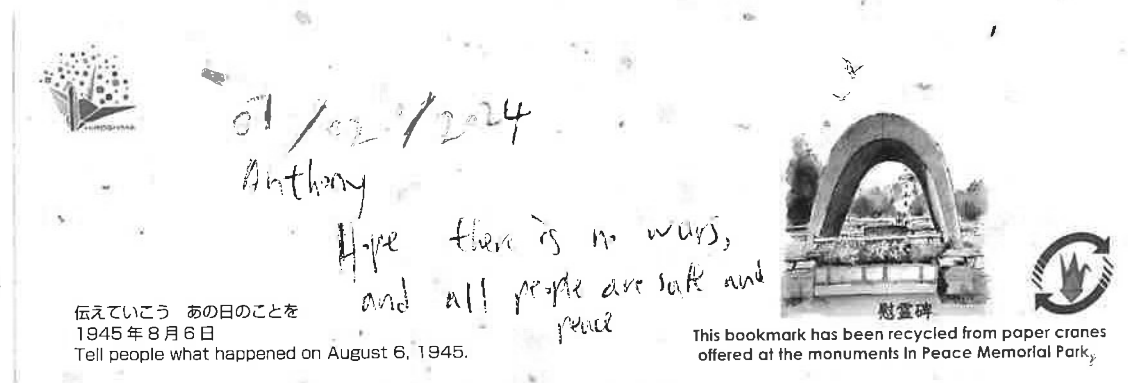 HIROSHIMA
01/02/2024
Anthony
Hope there is no wars,
and all people are safe and
peace
伝えていこう あの日のことを
1945年8月6日
Tell people what happened on August 6, 1945.
慰霊碑
This bookmark has been recycled from paper cranes
offered at the monuments in Peace Memorial Park.